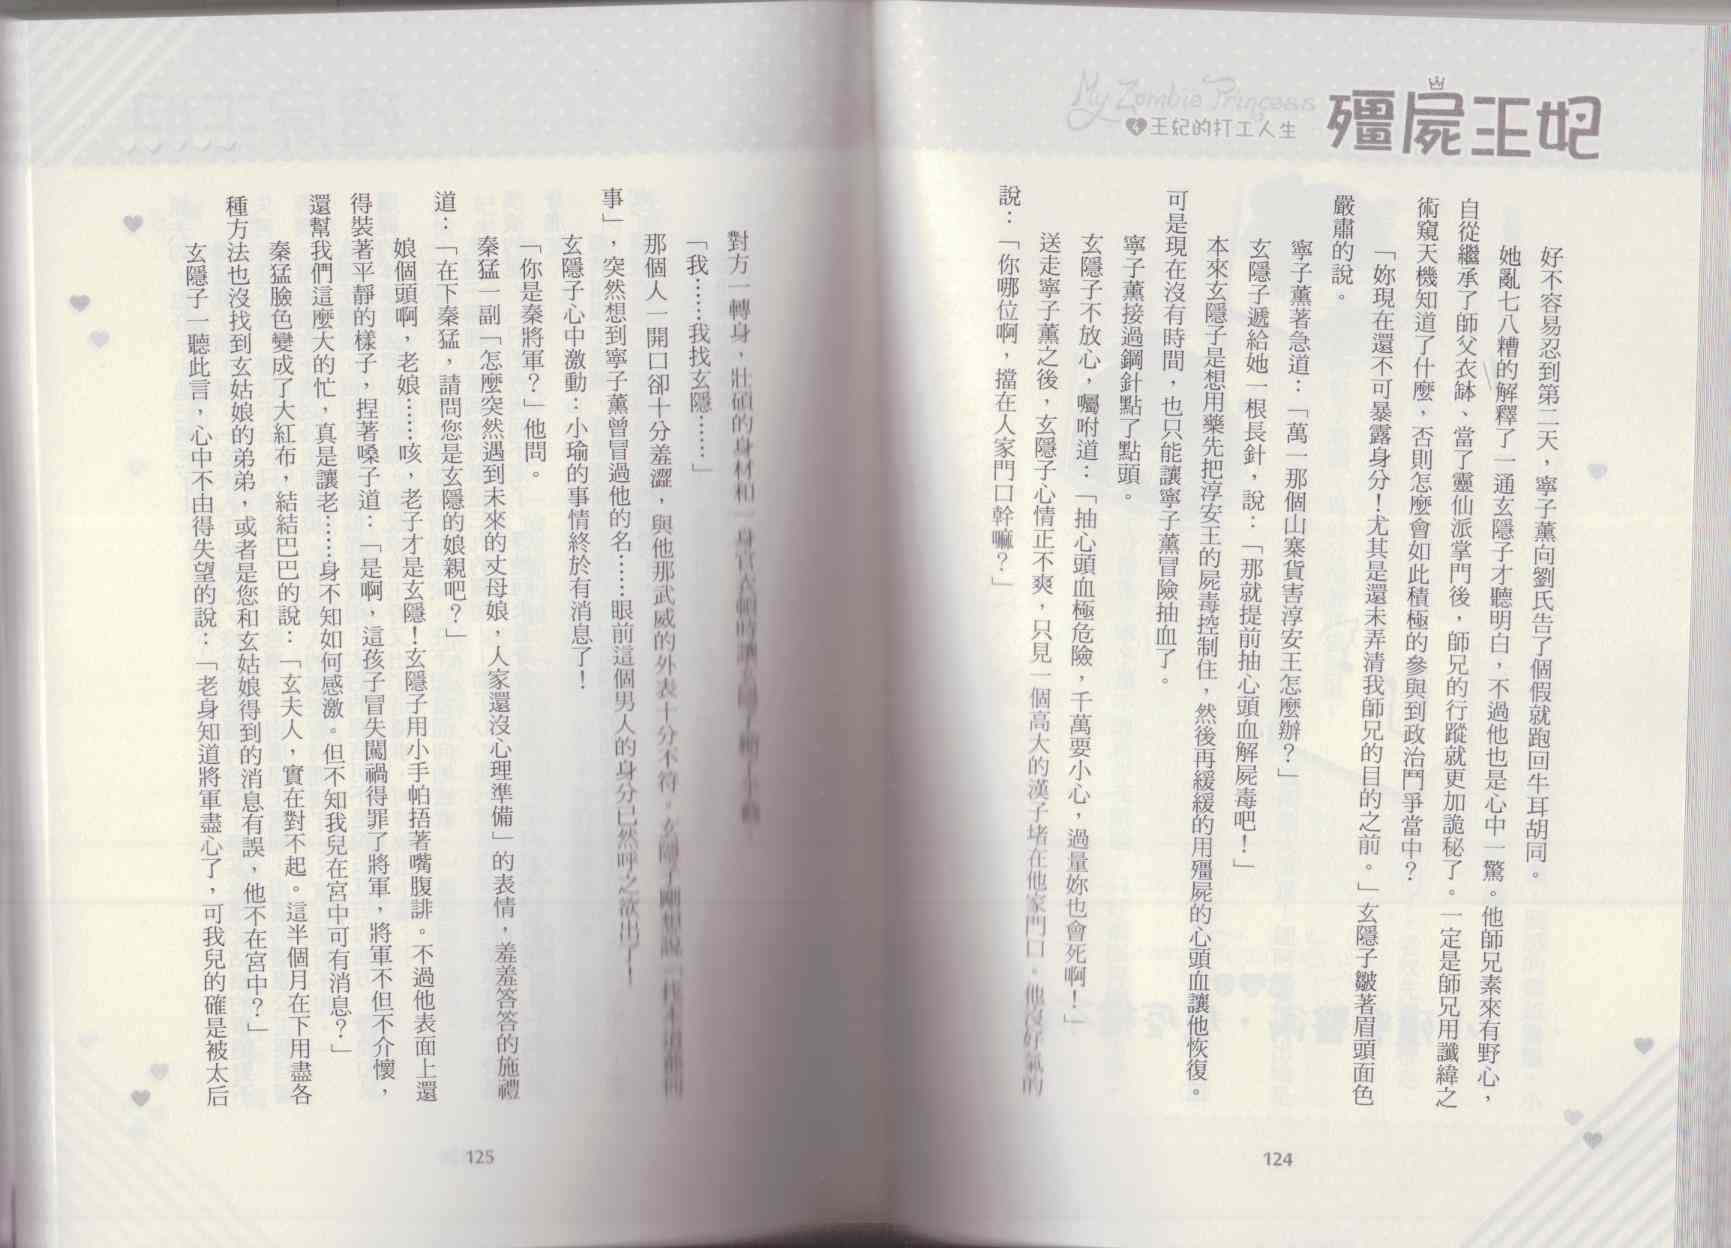 殭屍王妃
My Zombie Princess
4 王妃的打工人生
好不容易忍到第二天，寧子薰向劉氏告了個假就跑回牛耳胡同。
她亂七八糟的解釋了一通玄隱子才聽明白，不過他也是心中一驚。他師兄素來有野心，
自從繼承了師父衣缽、當了靈仙派掌門後，師兄的行蹤就更加詭秘了。一定是師兄用讖緯之
術窺天機知道了什麼，否則怎麼會如此積極的參與到政治鬥爭當中？
「妳現在還不可暴露身分！尤其是還未弄清我師兄的目的之前。」玄隱子皺著眉頭面色
嚴肅的說。
寧子薰著急道：「萬一那個山寨貨害淳安王怎麼辦？」
玄隱子遞給她一根長針，說：「那就提前抽心頭血解屍毒吧！」
本來玄隱子是想用藥先把淳安王的屍毒控制住，然後再緩緩的用殭屍的心頭血讓他恢復。
可是現在沒有時間，也只能讓寧子薰冒險抽血了。
寧子薰接過鋼針點了點頭。
玄隱子不放心，囑咐道：「抽心頭血極危險，千萬要小心，過量妳也會死啊！」
送走寧子薰之後，玄隱子心情正不爽，只見一個高大的漢子堵在他家門口，他沒好氣的
說：「你哪位啊，擋在人家門口幹嘛？」
124
對方一轉身，壯碩的身材和一身官衣頓時讓玄隱子
「我……我找玄隱……」
那個人一開口卻十分羞澀，與他那武威的外表十分不符。玄隱子剛想說「找本道爺何
事」，突然想到寧子薰曾冒過他的名……眼前這個男人的身分已然呼之欲出了！
玄隱子心中激動：小瑜的事情終於有消息了！
「你是秦將軍？」他問。
秦猛一副「怎麼突然遇到未來的丈母娘，人家還沒心理準備」的表情，羞羞答答的施禮
道：「在下秦猛，請問您是玄隱的娘親吧？」
娘個頭啊，老娘……咳，老子才是玄隱！玄隱子用小手帕捂著嘴腹誹。不過他表面上還
得裝著平靜的樣子，捏著嗓子道：「是啊，這孩子冒失闖禍得罪了將軍，將軍不但不介懷，
還幫我們這麼大的忙，真是讓老……身不知如何感激。但不知我兒在宮中可有消息？」
秦猛臉色變成了大紅布，結結巴巴的說：「玄夫人，實在對不起。這半個月在下用盡各
種方法也沒找到玄姑娘的弟弟，或者是您和玄姑娘得到的消息有誤，他不在宮中？」
玄隱子一聽此言，心中不由得失望的說：「老身知道將軍盡心了，可我兒的確是被太后
125